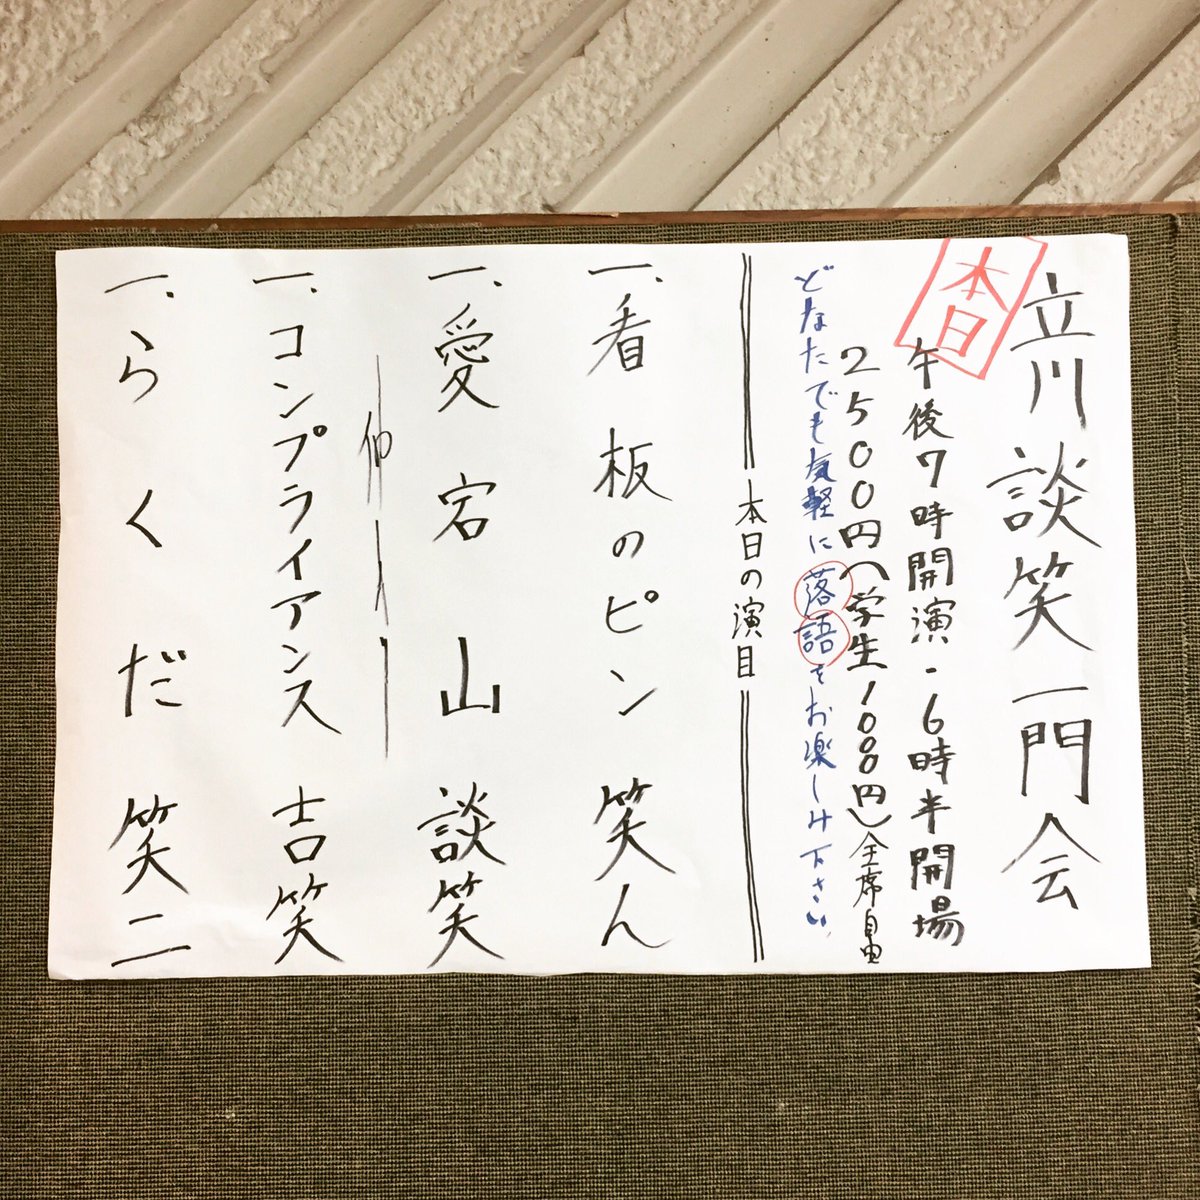 立川談笑一門会
本日
午後7時開演・6時半開場
2500円(学生1000円)全席自由
どなたでも気軽に落語をお楽しみ下さい
本日の演目
一、看板のピン 笑ん
一、愛宕山 談笑
仲入
一、コンプライアンス 吉笑
一、らくだ 笑二